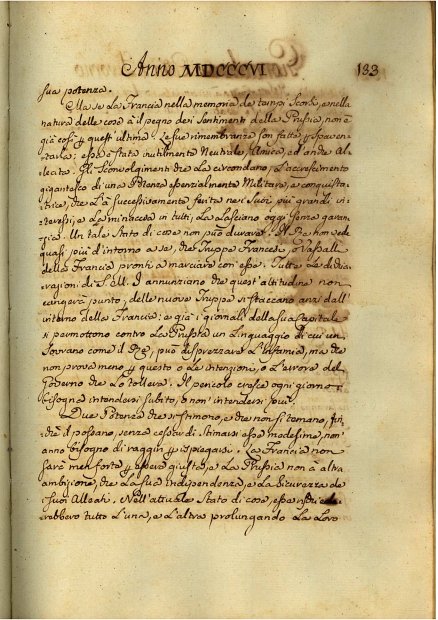 Anno MDCCCVI 183
sua potenza.
Ma se la Francia nella memoria de tempi scorsi, e nella
natura delle cose à il pegno dei Sentimenti della Prussia, non è
così quest'ultima. Le sue rimembranze son fatte spaven-
tarla; essa è stata inutilmente Neutrale, Amica, ed anche Al-
leata. Gli Sconvolgimenti che la circondano, l'accrescimento
gigantesco di una Potenza essenzialmente Militare, e conquista-
trice, che l'à successivamente ferita nei suoi più grandi in-
teressi, e la minaccia in tutti, la lasciano oggi senza garan-
zia. Un tale Stato di cose non può durare. Il Re non vede
quasi più d'intorno a se, che Truppe Francesi, o Vassalli
della Francia pronti a marciare con esse. Tutte le dichia-
razioni di S. M. I. annunziano che quest'attitudine non
cangerà punto; delle nuove Truppe si staccano anzi dall'
interno della Francia; e già i giornali della sua Capitale
si permettono contro la Prussia un linguaggio di cui un
Sovrano come il Rè, può disprezzare l'infamia, ma che
non prova meno o le intenzioni, o l'errore del
Governo che lo tollera. Il pericolo cresce ogni giorno:
bisogna intendersi subito, o non intendersi più.
Due Potenze che si stimono, e che non si temano,
chè il possano, senza cessar di stimarsi esse medesime, non
anno bisogno di raggiri spiegarsi. La Francia non
sarà men forte essere giusta, e la Prussia non à altra
ambizione, che la sua Indipendenza, e la Sicurezza de
suoi Alleati. Nell'attuale Stato di cose, esse
rebbero tutto l'una, e l'altra prolungando la loro